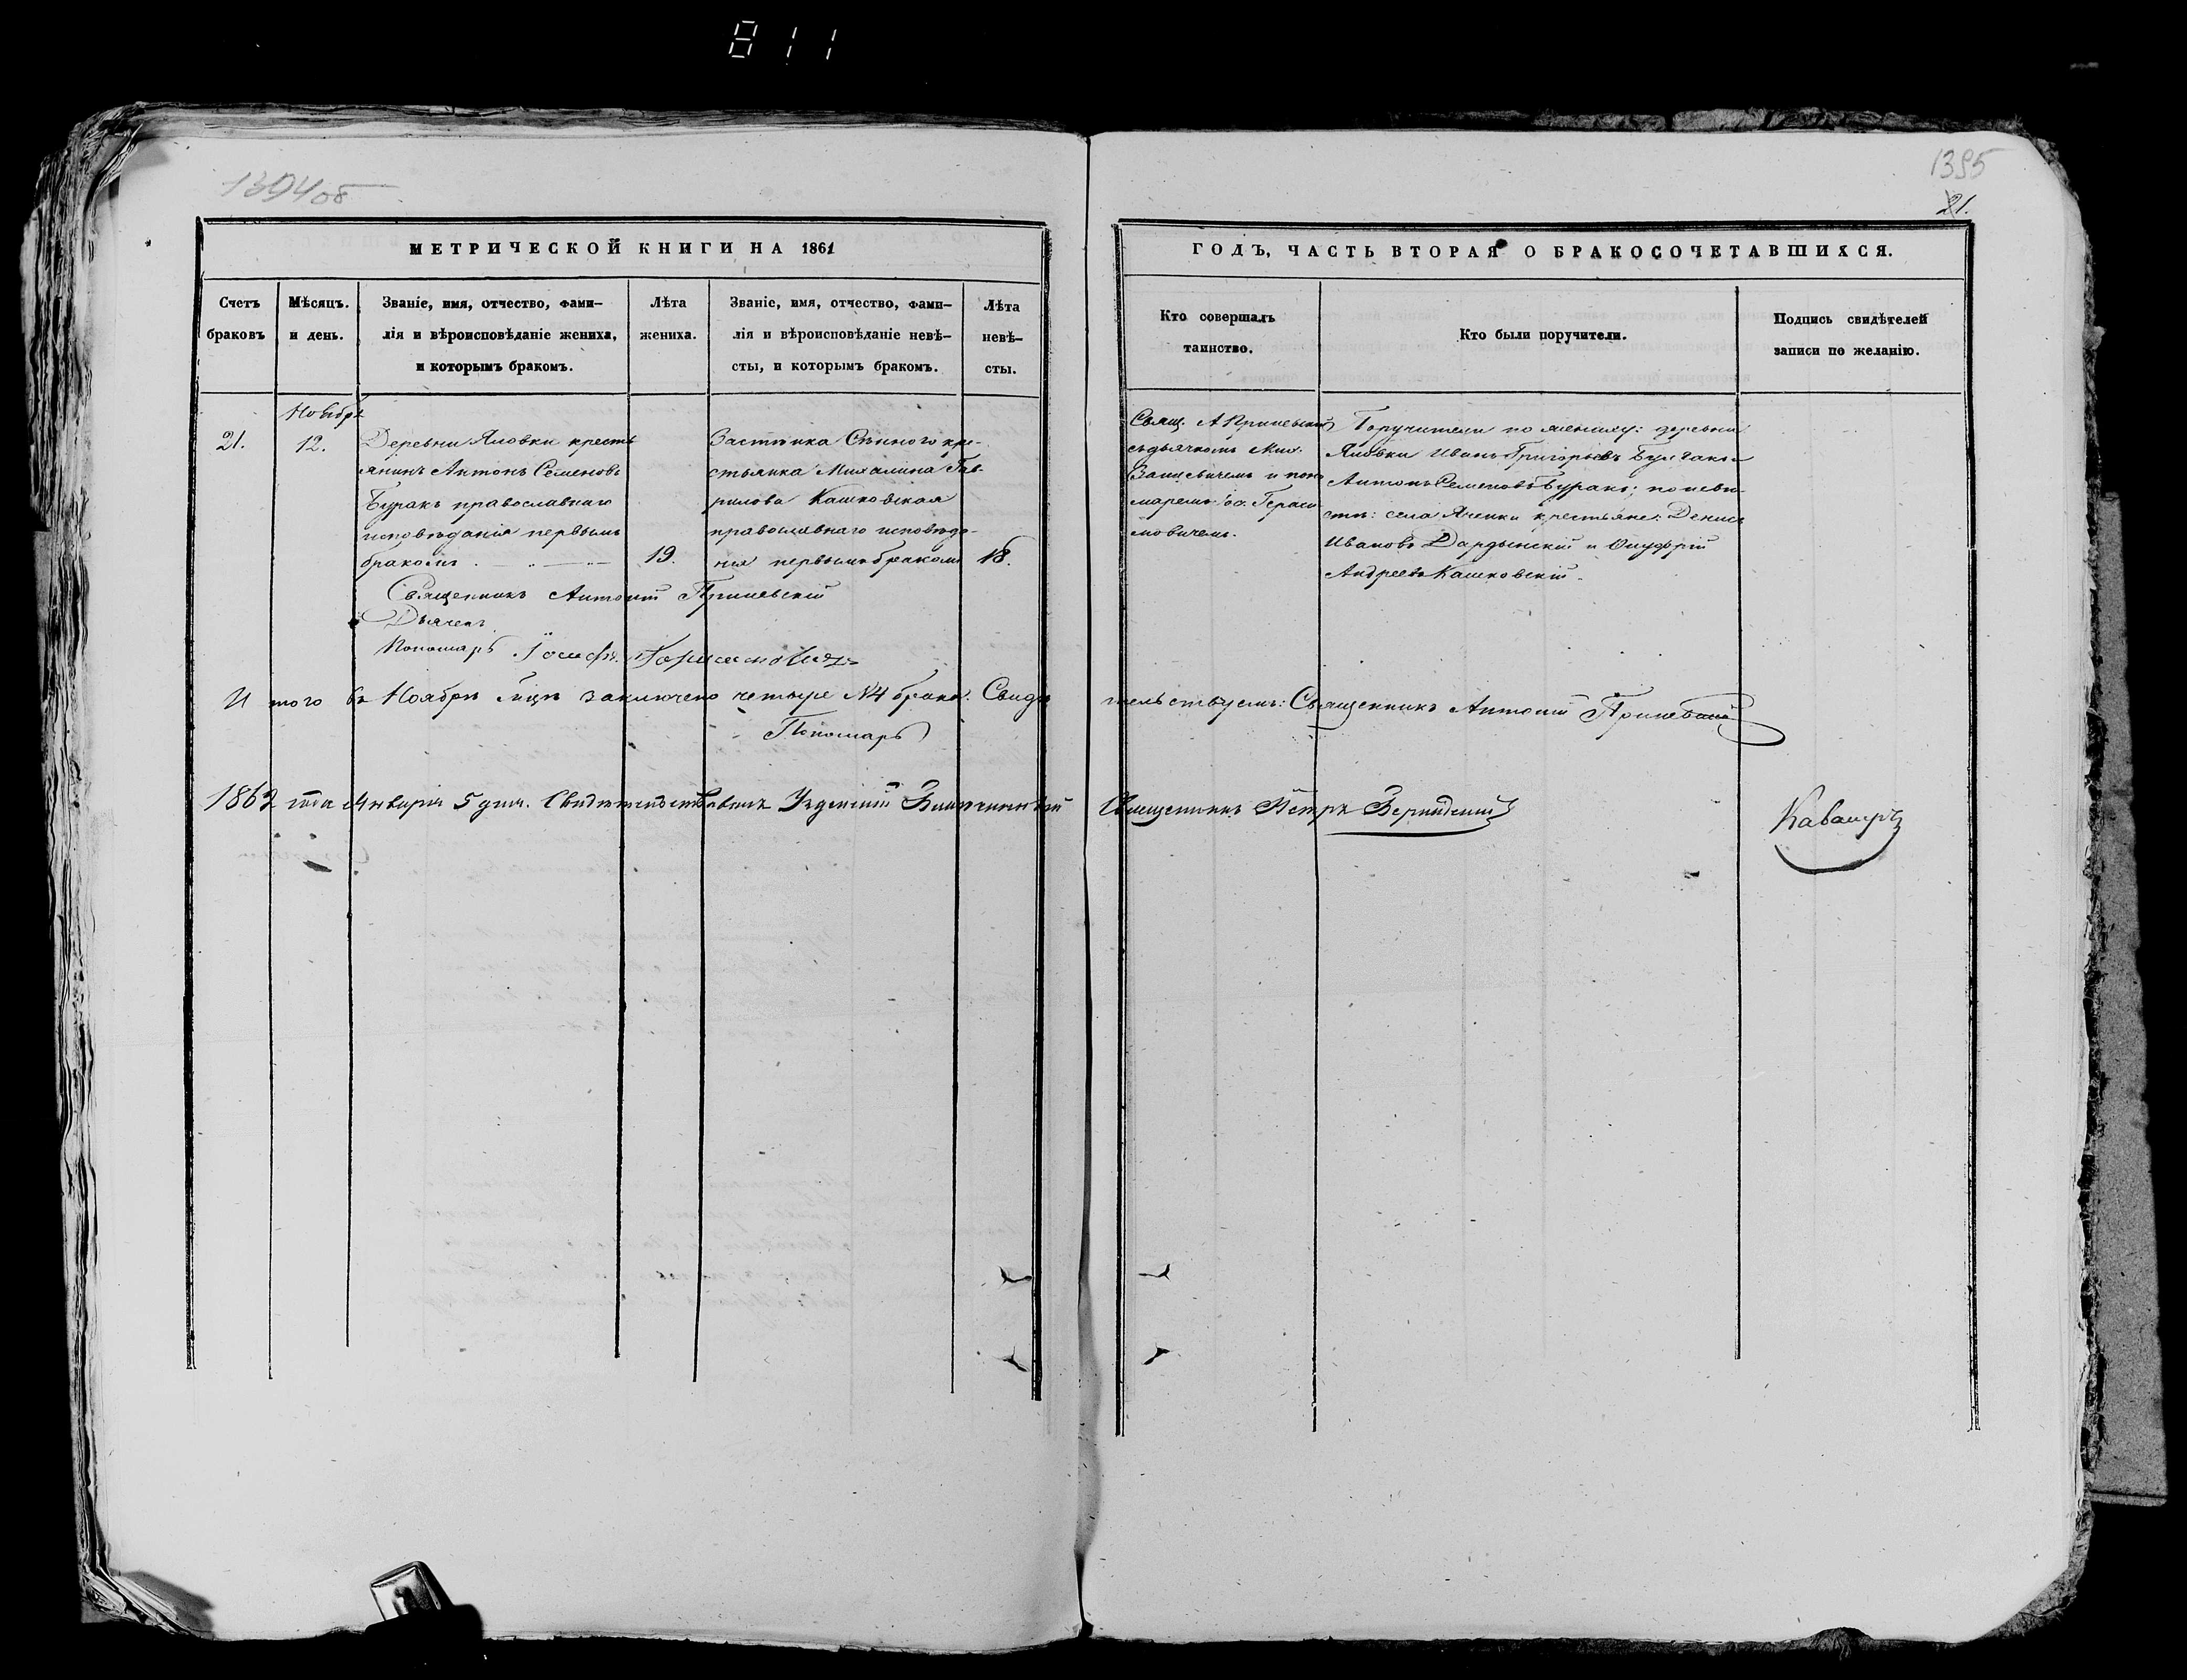 811
1394 об
1395
21.
МЕТРИЧЕСКОЙ КНИГИ НА 1861
ГОДЪ, ЧАСТЬ ВТОРАЯ О БРАКОСОЧЕТАВШИХСЯ.
Счетъ
браковъ
Мѣсяцъ.
и день.
Званіе, имя, отчество, фами-
лія и вѣроисповѣданіе жениха,
и которымъ бракомъ.
Лѣта
жениха.
Званіе, имя, отчество, фами-
лія и вѣроисповѣданіе невѣ-
сты, и которымъ бракомъ.
Лѣта
невѣ-
сты.
Кто совершалъ
таинство.
Кто были поручители.
Подпись свидѣтелей
записи по желанію.
21.
Ноября
12.
Деревни Яловки кресть
янинъ Антонъ Семеновъ
Буракъ православнаго
исповѣданія первымъ
бракомъ
19.
Застѣнка Сѣнного кре-
стьянка Михалина Гав-
рилова Кашковская
православнаго исповѣда-
нія первымъ бракомъ
18.
Свящ. А Приневскій
съ дьячкомъ Мих.
и поно
маремъ Іос. Гераси
мовичемъ.
Поручители по жениху: деревни
Яловки Иванъ Григорьевъ
Антонъ Семеновъ Буракъ; по невѣ
стѣ: села крестьяне: Денисъ
Ивановъ Дардынскій и Онуфрій
Андреевъ Кашковскій.
Священникъ Антоній Приневскій
Дьячекъ
Пономарь Іосифъ Герасимовичъ
И того въ Ноябрѣ мцѣ заключено четыре № 4 брака. Свидѣ
тельствуемъ: Священникъ Антоній Приневскій
Пономарь
1862 года Января 5 дня. Свидѣтельствовалъ Уѣздный
Священникъ Петръ